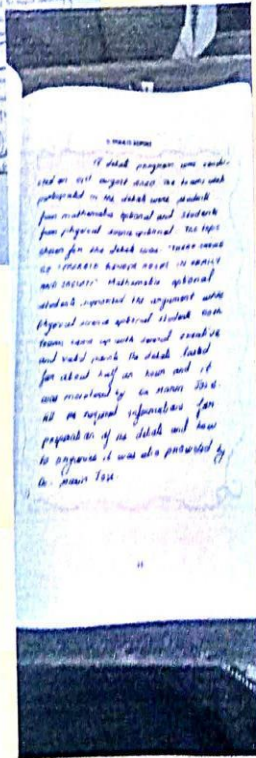 A debate program was condu-
cted on 21st august. The teams which
participated in the debate were students
from mathematics optional and students
from physical science optional. The topic
chosen for the debate was "THERE SHOULD
BE GENDER ROLES IN FAMILY
AND SOCIETY" Mathematics optional
students represented the argument while
physical science optional student. Both
teams came up with several creative
and valid points. The debate lasted
for about half an hour and it
was monitored by Jose.
All the required informations for
preparation of the debate and how
to organise it was also presented by
Jose.